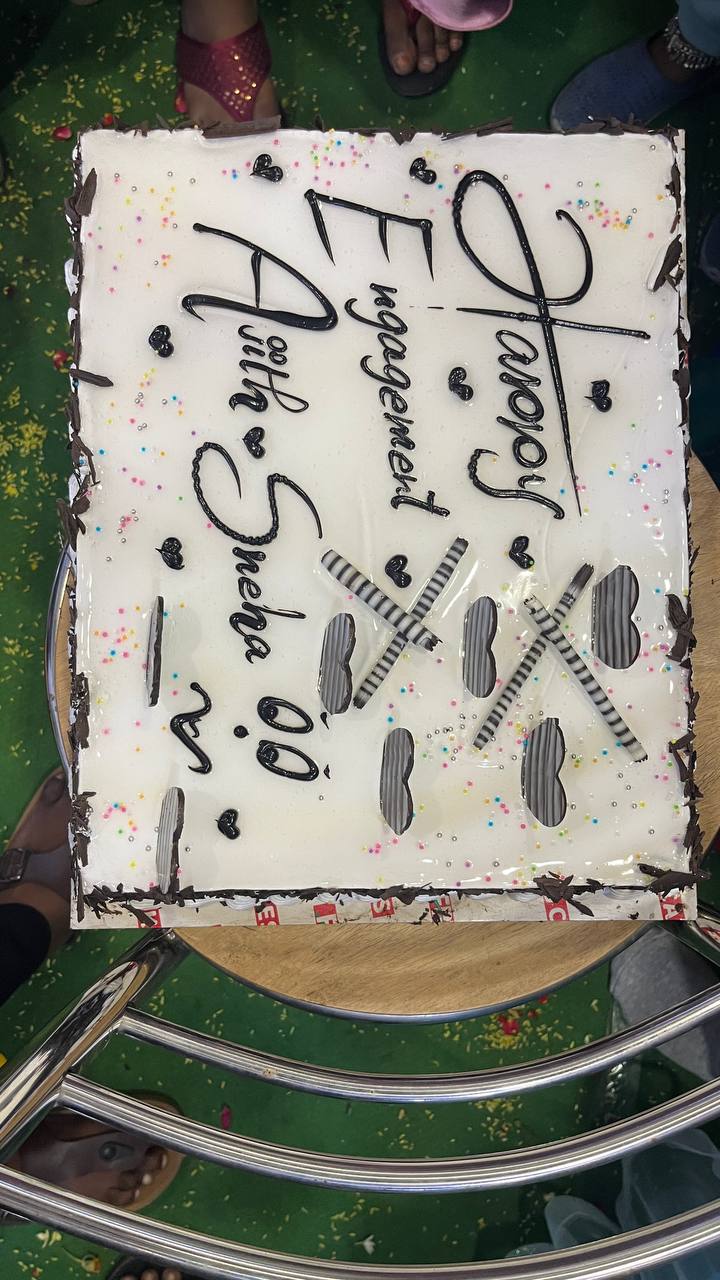 Happy
Engagement
Ajith Sneha